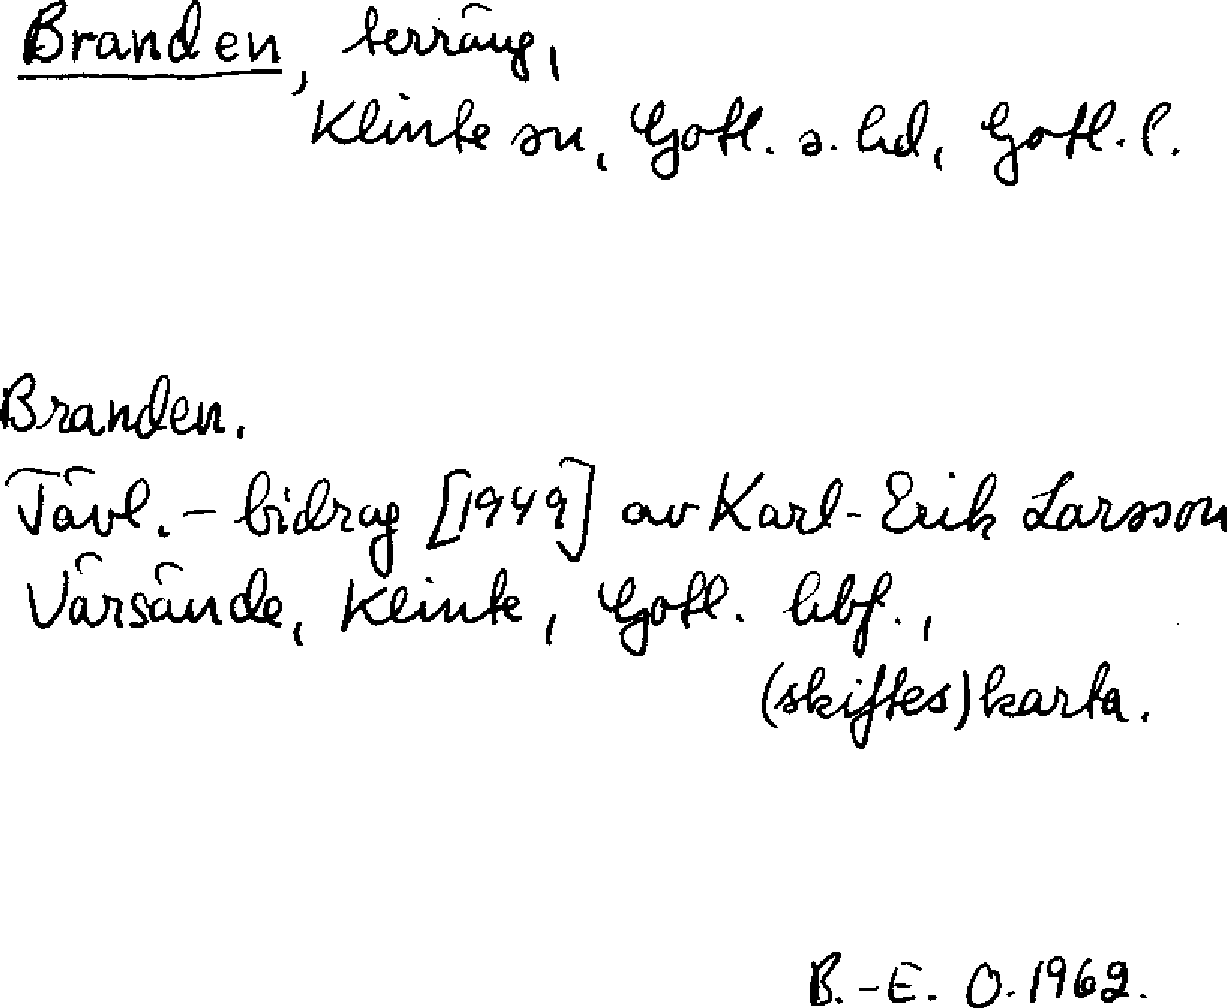 Branden, terräng,
Klinte sn, Gotl. s. hd, Gotl. l.
Branden.
Tävl. - bidrag [1949] av Karl-Erik Larsson
Värsände, Klinte, Gotl. hbf.,
(skiftes)karta.
B.-E. O. 1962.